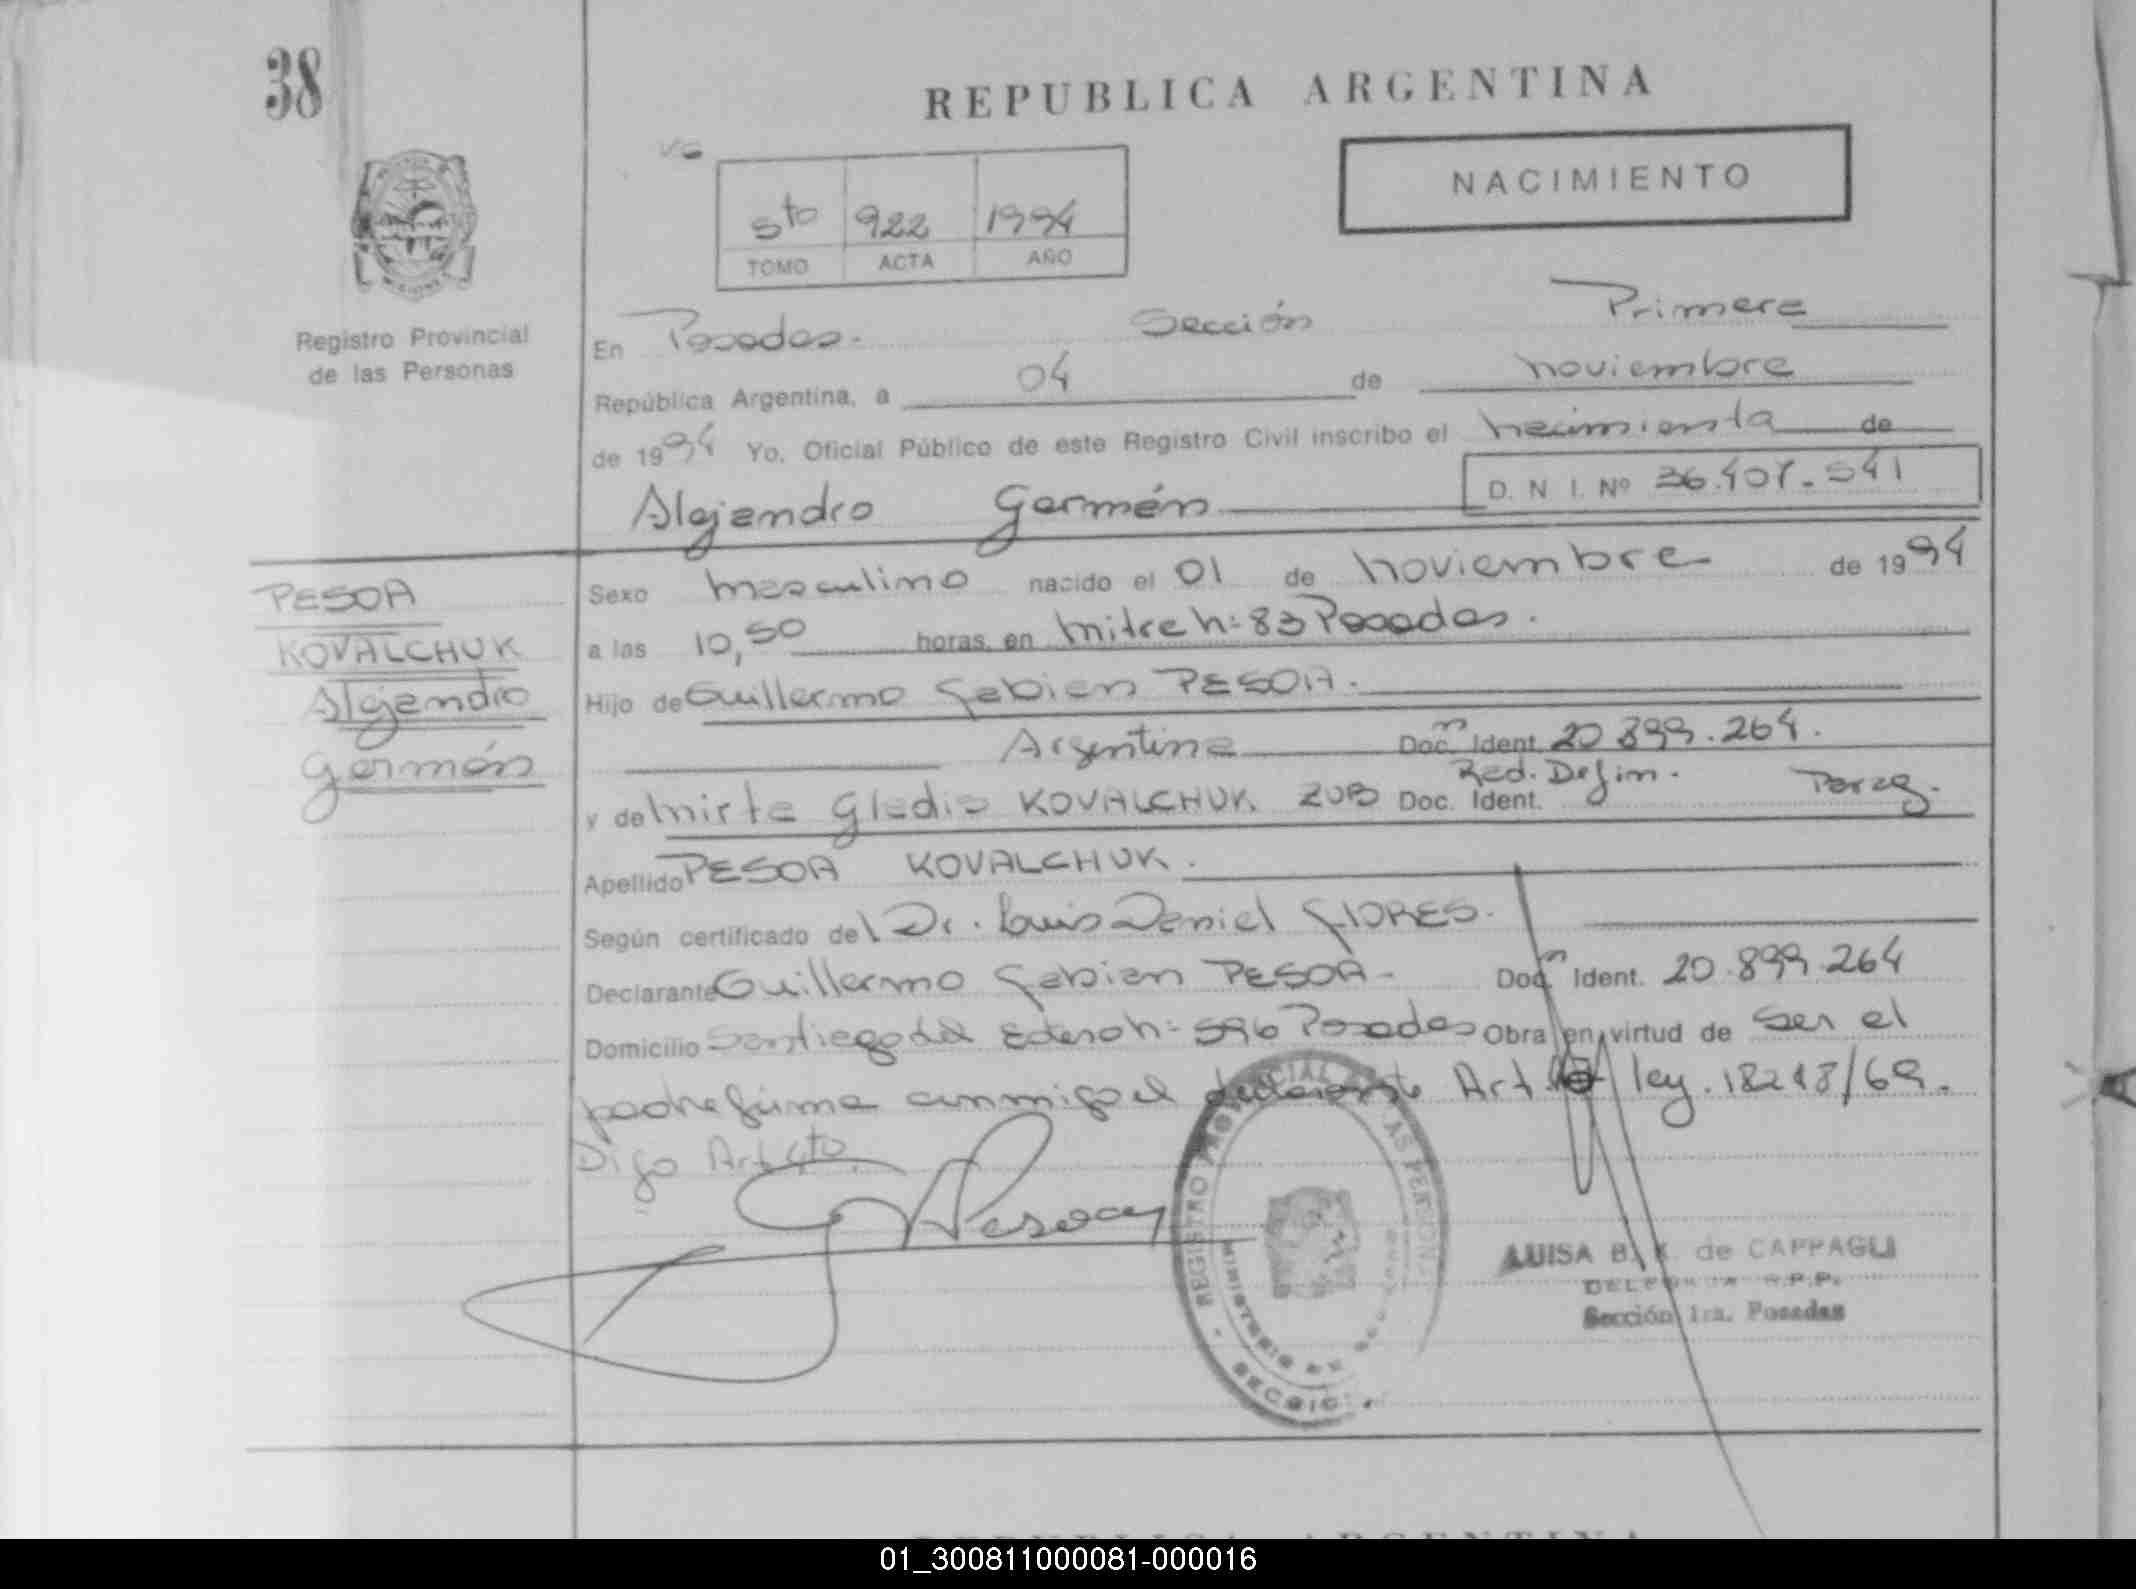 38
REPUBLICA ARGENTINA
NACIMIENTO
5to 922 1994
TOMO ACTA AÑO
Registro Provincial
de las Personas
En Posadas. Sección Primera
República Argentina, a 04 de noviembre
de 1994 Yo, Oficial Público de este Registro Civil inscribo el nacimiento de
D. N I. Nº 36.407.541
Alejandro Germán
PESOA
KOVALCHUK
Alejandro
Germán
Sexo masculino nacido el 01 de noviembre de 1994
a las 10,50 horas, en mitre n: 83 Posadas.
Hijo de Guillermo Fabian PESOA.
Argentina Doc. Ident. 20 899.264.
y de mirta Gladis KOVALCHUK Doc. Ident. Red. Defin. Parag.
Apellido PESOA KOVALCHUK.
Según certificado del Dr. Luis Daniel FLORES.
Declarante Guillermo Fabian PESOA- Doc. Ident. 20.899.264
Domicilio Santiago del Estero n: 596 Posadas Obra en virtud de ser el
padre firma conmigo el declarante Art ley. 18248/69.
Digo Art 4to.
Pesoa
REGISTRO PROVINCIAL DE LAS PERSONAS
LUISA B. K. de CAPPAGLI
DELEGADA R.P.P.
Sección 1ra. Posadas
REPUBLICA ARGENTINA
01_300811000081-000016